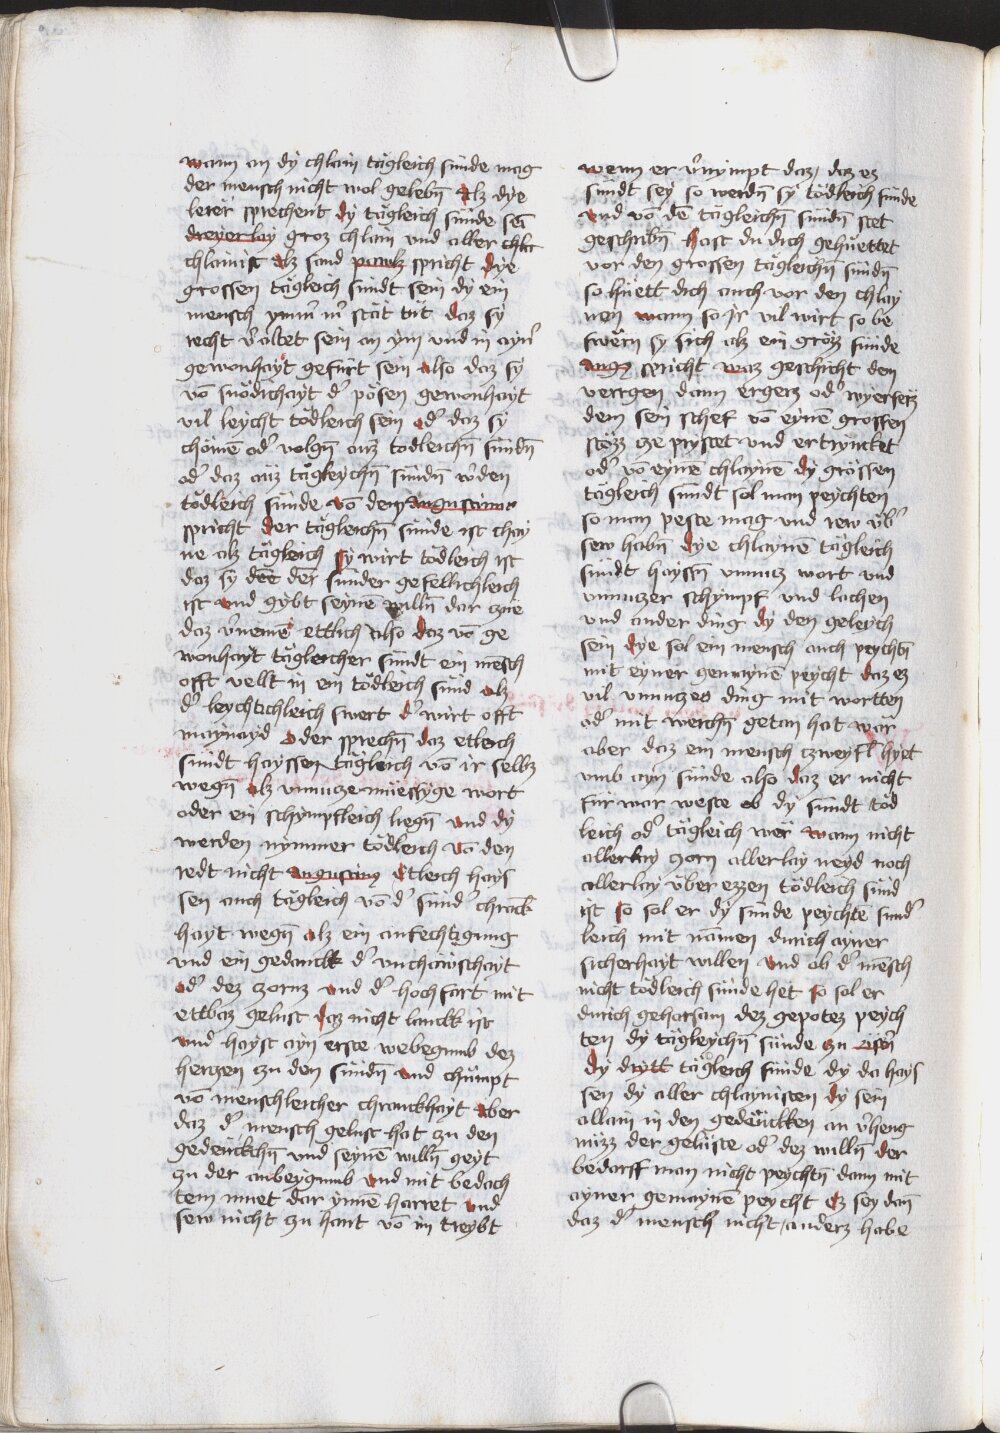 wann an dy chlain tägleich sünde mag
der mensch nicht wol gelebn̄ Alz dye
lerer sprechent dy tägleich sünde sein̄
dreyerlay groz chlain vnd aller chla
chlainist Alz sand pawlz spricht Dye
grossen tägleich sundt sein dy ein
mensch ymm̄ m̄ stät tüt daz sy
recht v̓altet sein an ym vnd in ayn̓
gewonhayt gefürt sein Also daz sy
vō snödichayt d̓ pösen gewonhayt
vil leycht tödleich sein od̓ daz sy
chömē od̓ volgn̄ auz todleichn̄ sündn̄
od̓ daz auz tägleychn̄ sündn̄ w̓den
tödleich sünde vō dem Augustinus
spricht Der tägleichn̄ sünde ist chay
ne alz tägleich sy wirt tödleich ist
daz sy dēe der sünder gefellichleich
ist vnd gybt seynē willn̄ dar czue
daz v̓nemē ettlich also daz vō ge
wonhayt tägleicher sündt ein mēsch
offt vellt in ein tödleich sünd alz
d̓ leychtichleich swert d̓ wirt offt
maynayd Oder sprechn̄ daz etleich
sündt hayssen tägleich vō ir selbz
wegn̄ Alz vnnucze muessyge wort
oder ein schympfleich liegn̄ vnd dy
werden nymmer tödleich vō den
redt nicht Augustinus Etleich hays
sen auch tägleich vō d̓ sünd̓ chranck
hayt wegn̄ alz ein anfechtigung
vnd ein gedanckk d̓ vnchäwschayt
od̓ dez czornz vnd d̓ hochfart mit
ettbaz gelust daz nicht lanckk ist
vnd hayst ayn erste webegnub dez
herczen czu den sündn̄ vnd chümpt
vō menschleicher chranckhayt Aber
daz d̓ mensch gelust hat zu den
gedenckhn̄ vnd seynē willn̄ geyt
zu der anbeygnub vnd mit bedach
tem muet dar ynnē harret vnd
sew nicht zu hant vō im treybt
wenn er v̓nympt daz, daz ez
sündt sey so werdn̄ sy tödleich sünde
vnd vō dē tägleichn̄ sündn̄ stet
geschribn̄ Hast du dich gehüettet
vor den grossen tägleichn̄ sündn̄
so hüett dich auch vor den chlay
nen wann so ir vil wirt so be
swërn sy sich alz ein grözz sünde
Augꝰ spricht waz geschicht dem
vergen dann ergerz od̓ wyersetz
dem sein schef vō eynē grossen
stözz cze prystet vnd ertryncket
od̓ vō eynē chlaynē dy grössen
tägleich sündt sol man peychten
so man peste mag vnd rew vb̓
sew habn̄ Dye chlaynē tägleich
sündt hayssn̄ vnnucz wort vnd
vnnuczer schympf vnd lachen
vnd ander ding dy den geleich
sein dye sol ein mensch auch peychtn̄
mit eyner gemaynē peycht daz ez
vil vnnuczes ding mit wortten
od̓ mit werchn̄ getan hat wär
aber daz ein mensch czweyfl hyet
vmb ayn sünde also daz er nicht
für war weste ob dy sündt töd
leich od̓ tägleich wër wann nicht
allerlay zorn allerlay neyd noch
allerlay über ezzen tödleich sünd
ist so sol er dy sünde peychtē sund̓
leich mit nämen durich ayner
sicherhayt willen vnd ob d̓ mēsch
nicht tödleich sünde het so sol er
durich gehorsam dez gepotez peych
ten dy tägleychn̄ sünde zu
dy drytt tägleich sünde dy da hays
sen dy aller chlaynisten dy sein
allain in den gedënckken an v̓heng
nuzz der gelüste od̓ dez willn̄ der
bedarff man nicht peychtn̄ dann mit
ayner gemaynē peycht Ez sey dan̄
daz d̓ mensch nicht anderz habe